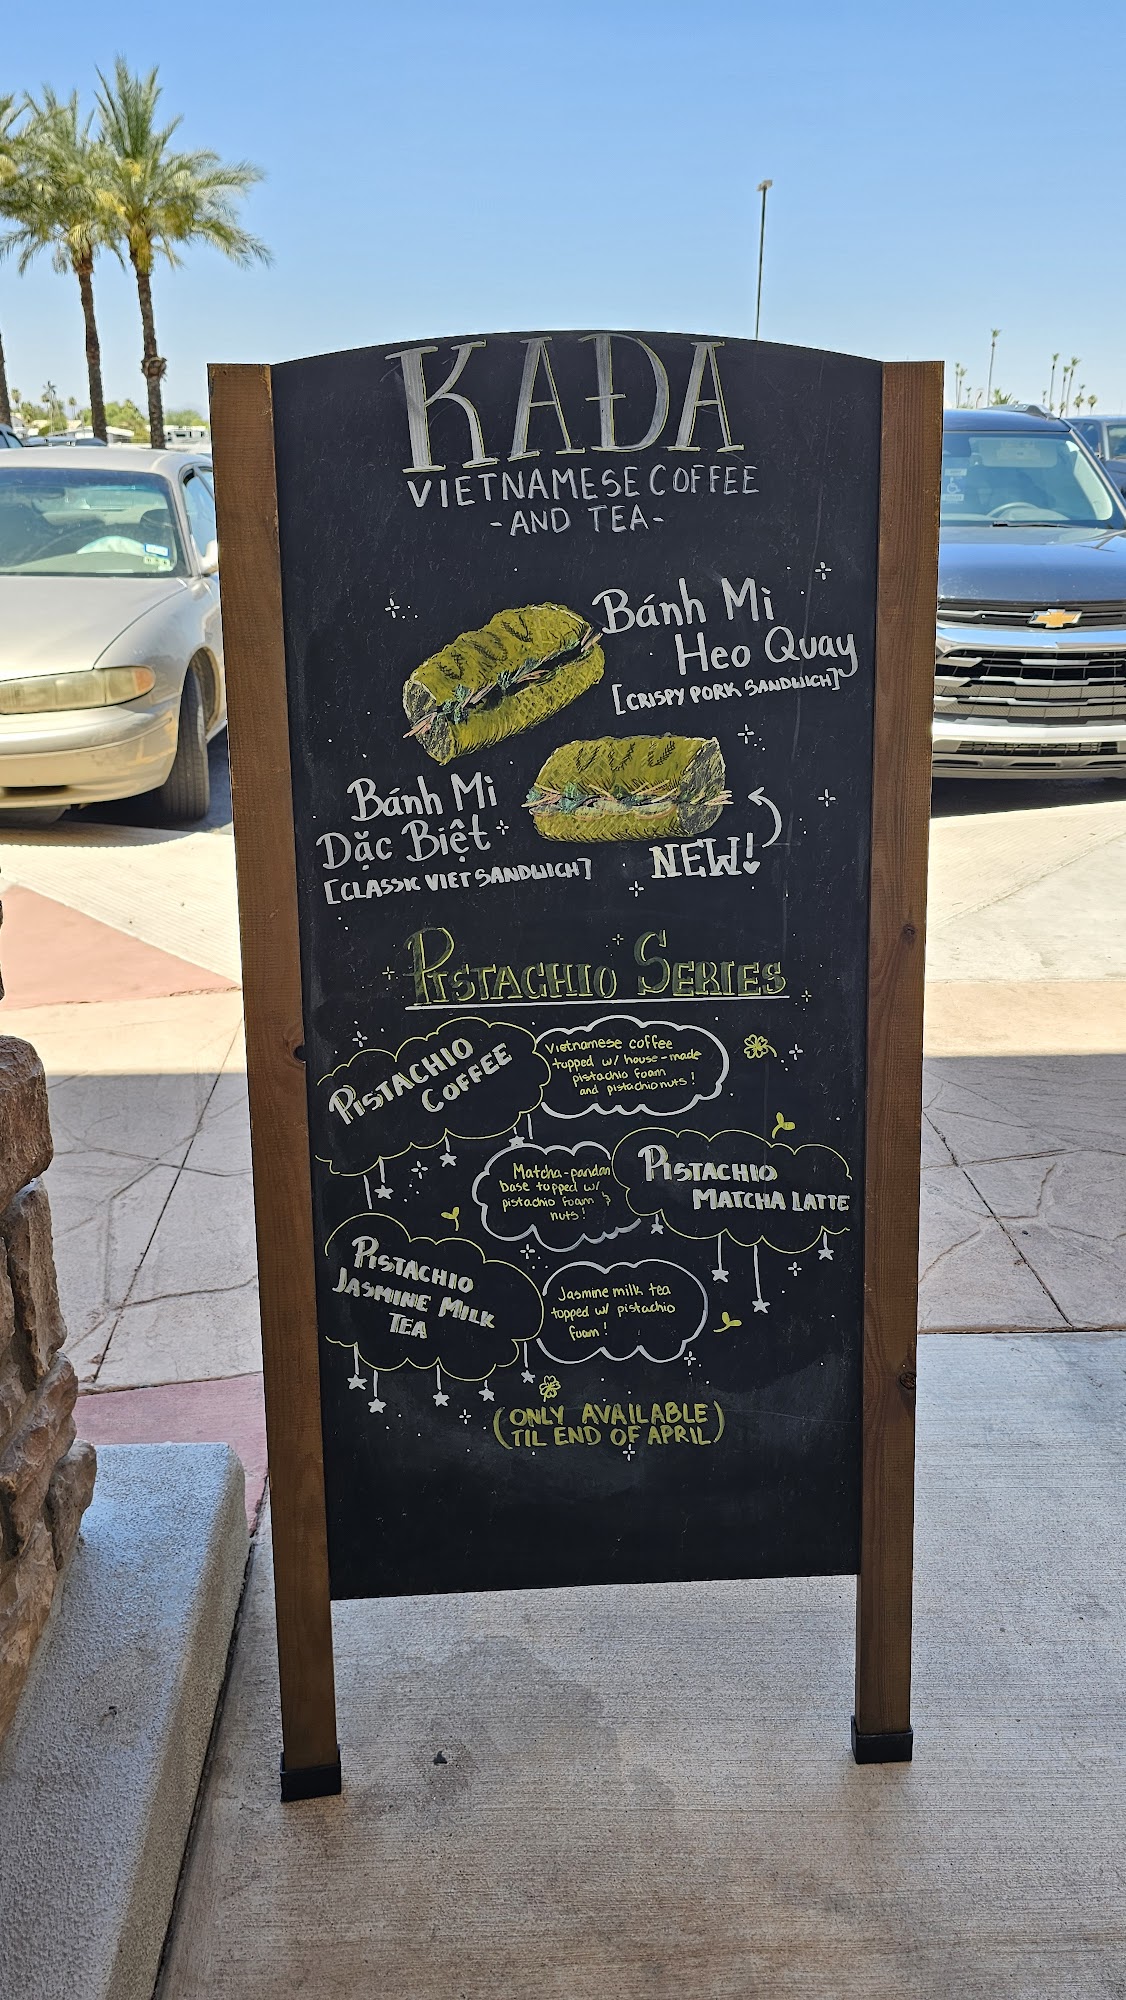 KAĐA
VIETNAMESE COFFEE
-AND TEA-
Bánh Mì
Heo Quay
[CRISPY PORK SANDWICH]
Bánh Mì
Dặc Biệt
[CLASSIC VIET SANDWICH]
NEW!
PISTACHIO SERIES
PISTACHIO
COFFEE
Vietnamese coffee
topped w/ house-made
pistachio foam
and pistachio nuts!
Matcha-pandan
base topped w/
pistachio foam &
nuts!
PISTACHIO
MATCHA LATTE
PISTACHIO
JASMINE MILK
TEA
Jasmine milk tea
topped w/ pistachio
foam!
(ONLY AVAILABLE
TIL END OF APRIL)